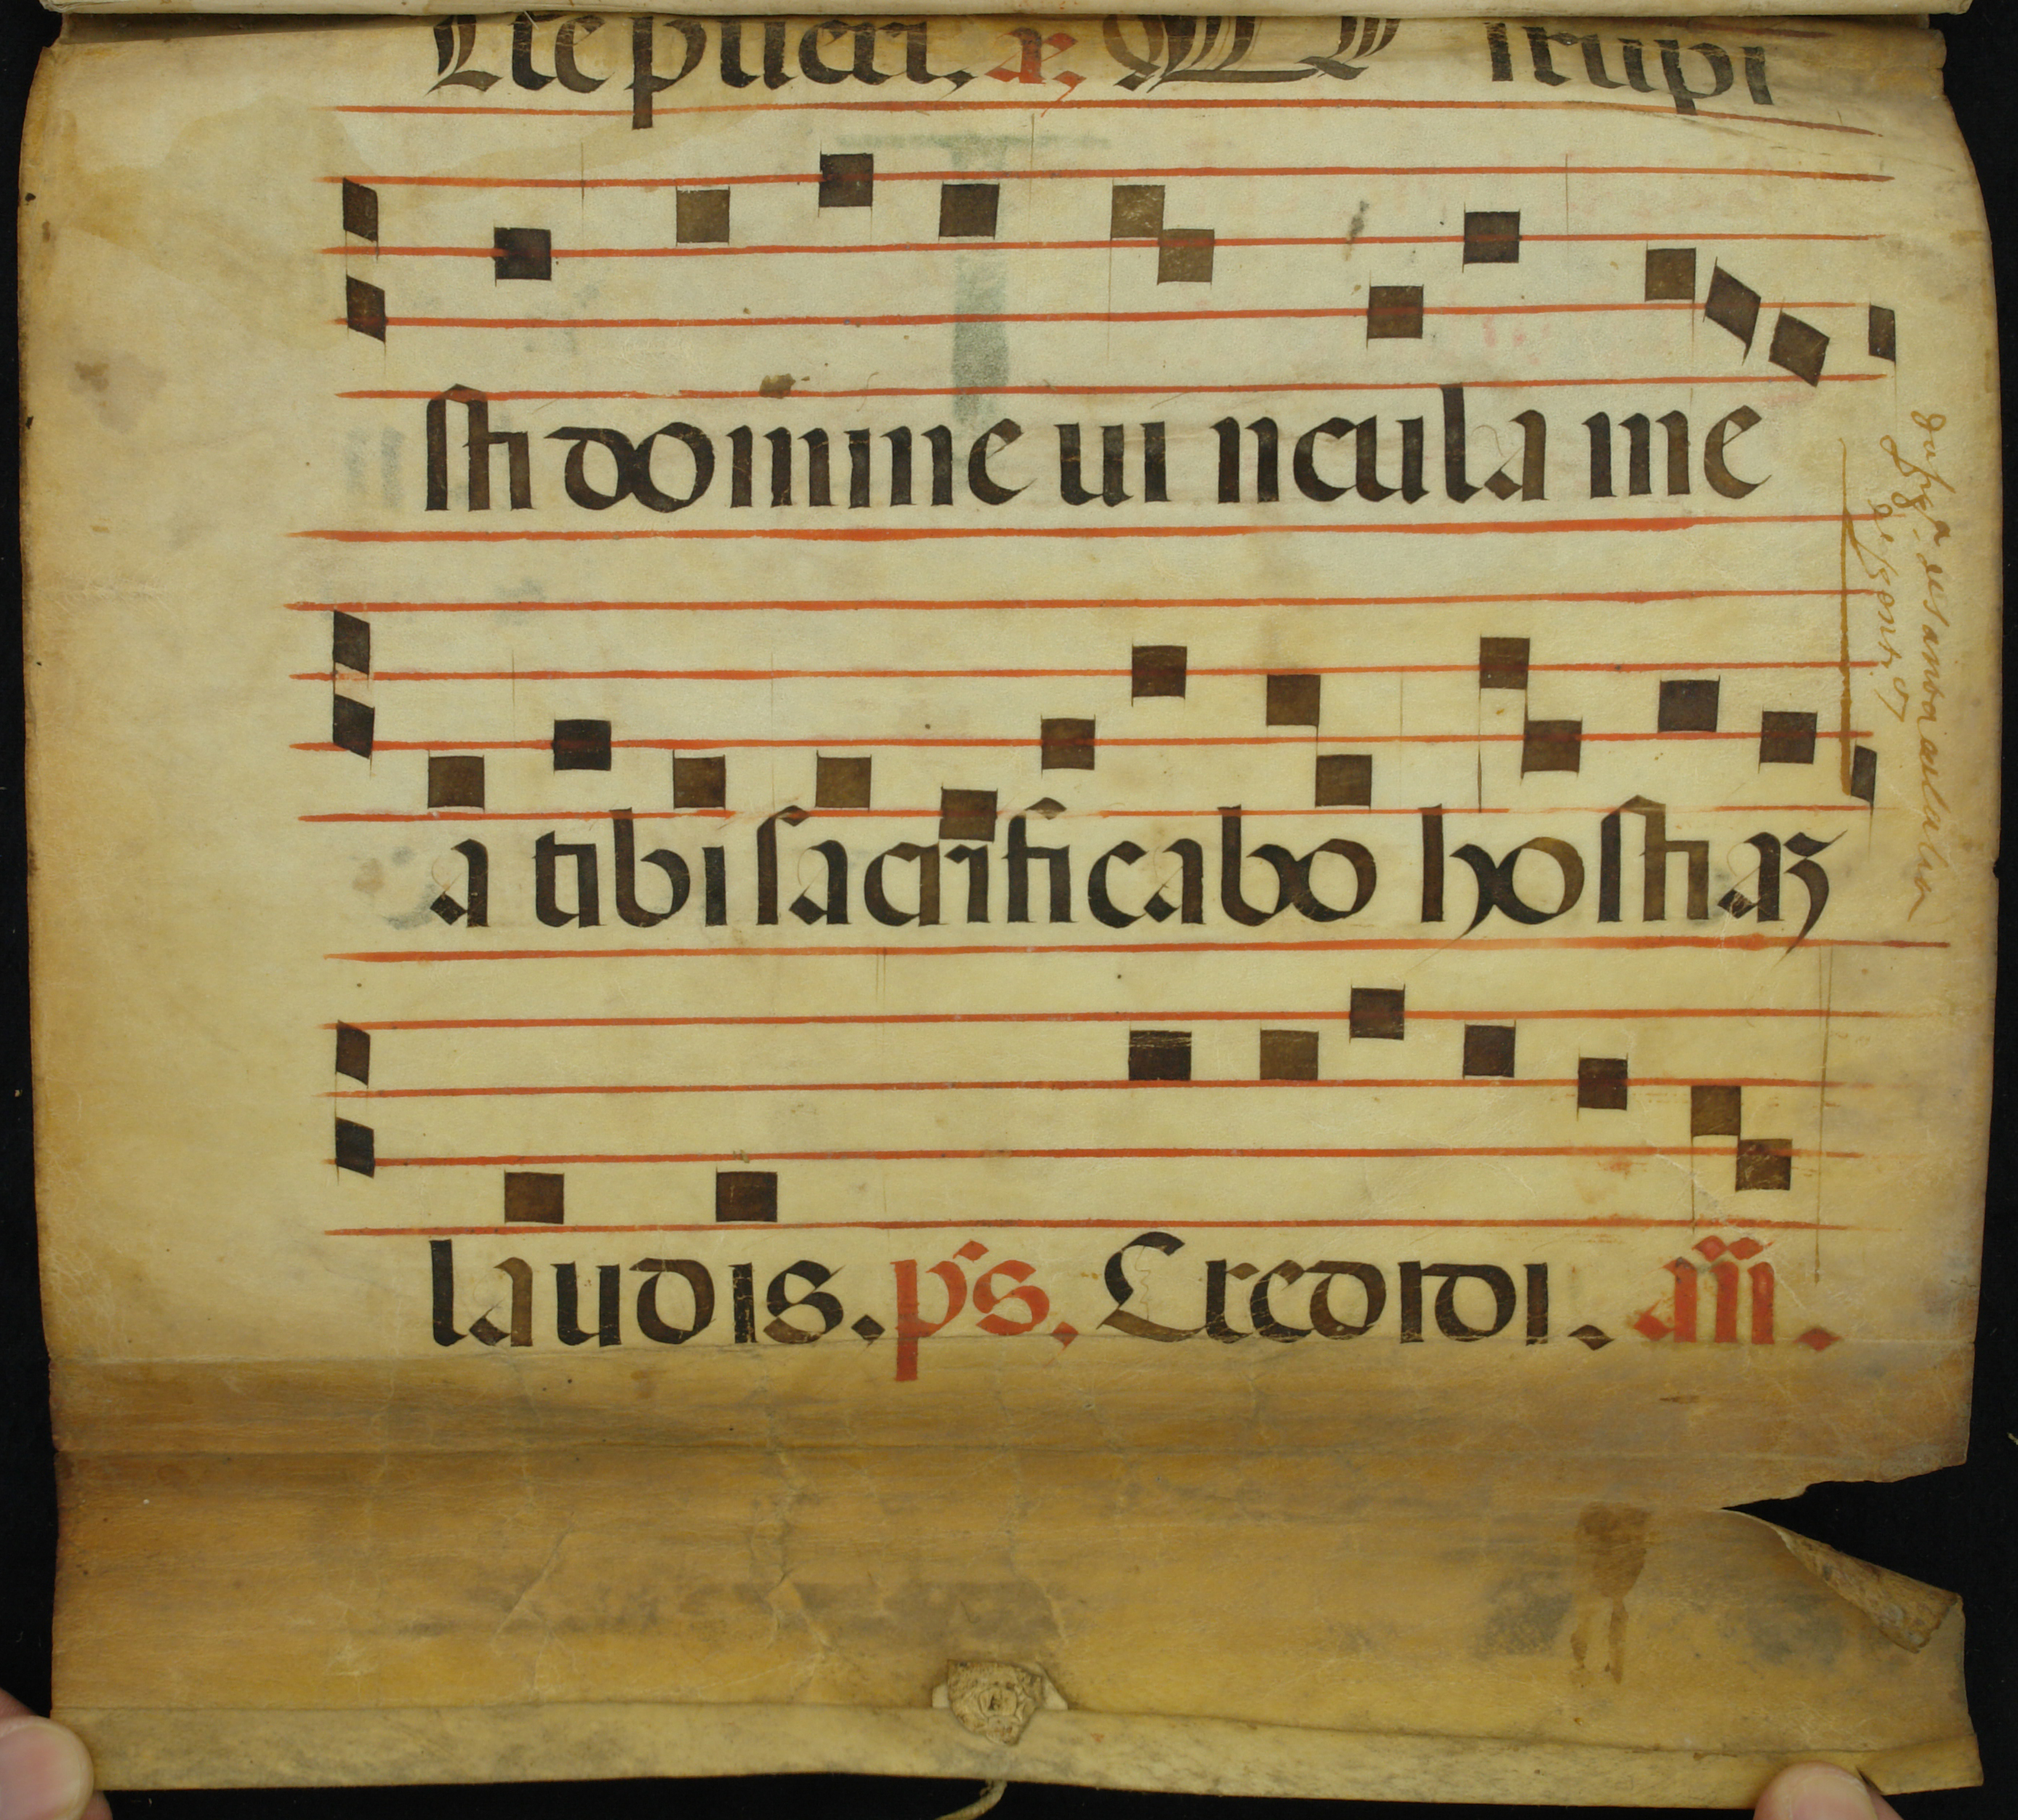 Ite pueri. a͂. Dirupi
sti domine ui ncula me
a tibi sacrificabo hostiaꝝ
laudis. ps. Credidi. an̄.